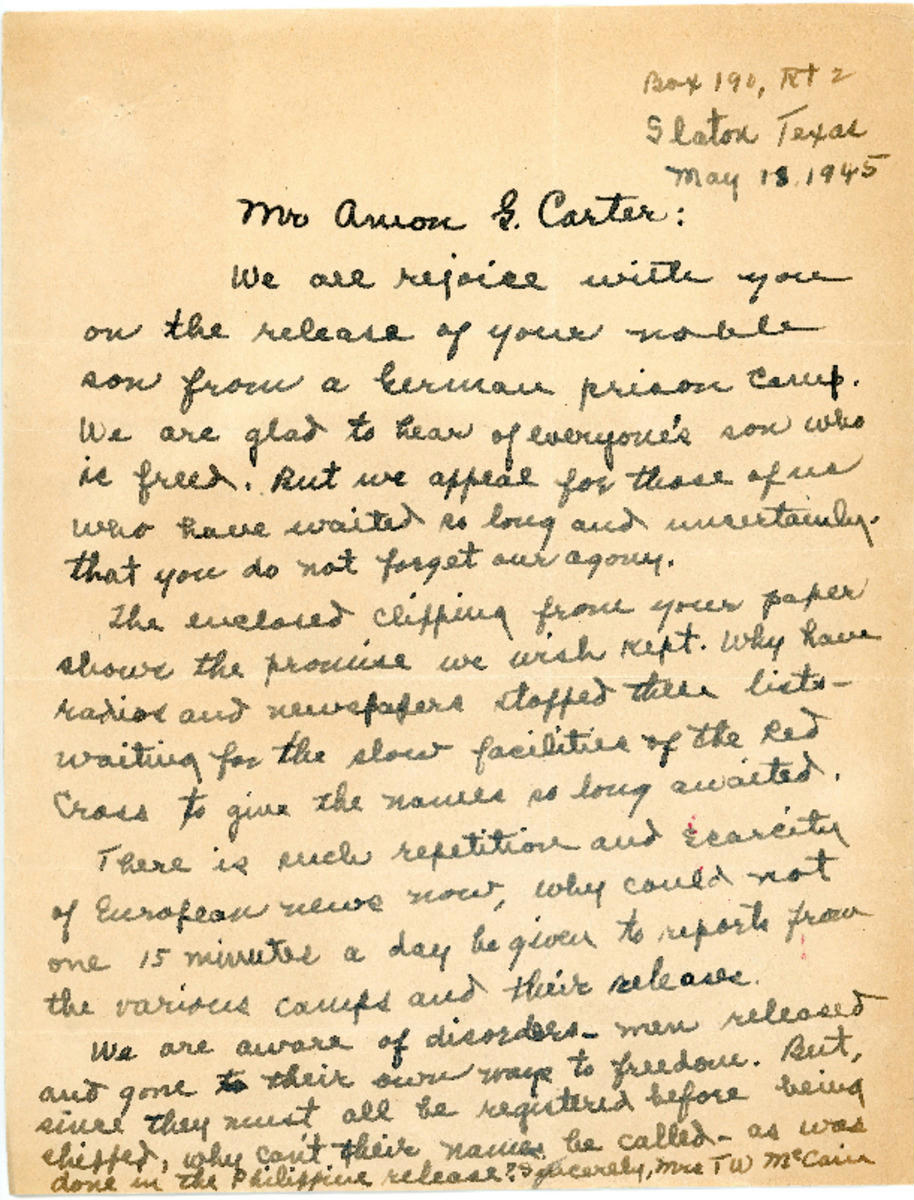 Box 190, Rt 2
Slaton Texas
May 18, 1945
Mr Amon G. Carter:
We all rejoice with you
on the release of your noble
son from a German prison camp.
We are glad to hear of everyone's son who
is freed. But we appeal for those of us
who have waited so long and uncertainly.
that you do not forget our agony.
The enclosed clipping from your paper
shows the promise we wish kept. Why have
radios and newspapers stopped these lists-
waiting for the slow facilities of the Red
Cross to give the names so long awaited.
There is such repetition and scarcity
of European news now, why could not
one 15 minutes a day be given to reports from
the various camps and their releases.
We are aware of disorders- men released
and gone to their own ways to freedom. But,
since they must all be registered before being
shipped, why can't their names be called- as was
done in the Philippine release? Sincerely, Mrs T W McCain